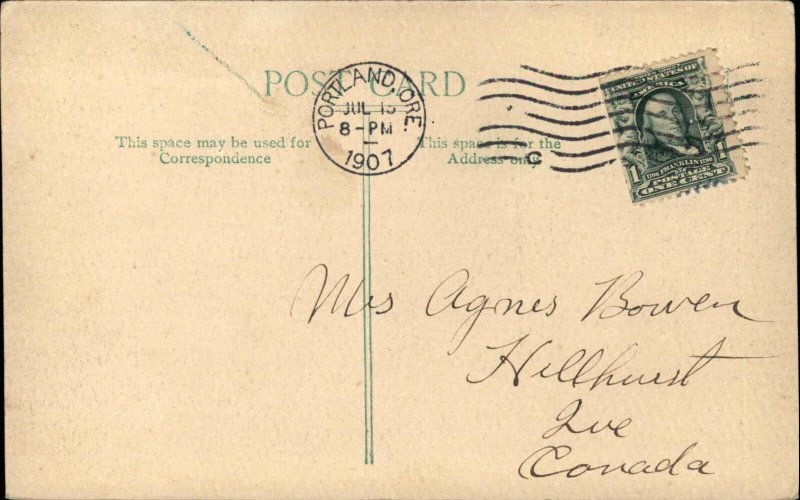 POST CARD
PORTLAND, ORE.
JUL 15
8-PM
1907
UNITED STATES OF
AMERICA
1790 FRANKLIN 1790
1 POSTAGE 1
ONE CENT
This space may be used for
Correspondence
This space is for the
Address only
C
Mrs Agnes Bowen
Hillhurst
Que
Canada